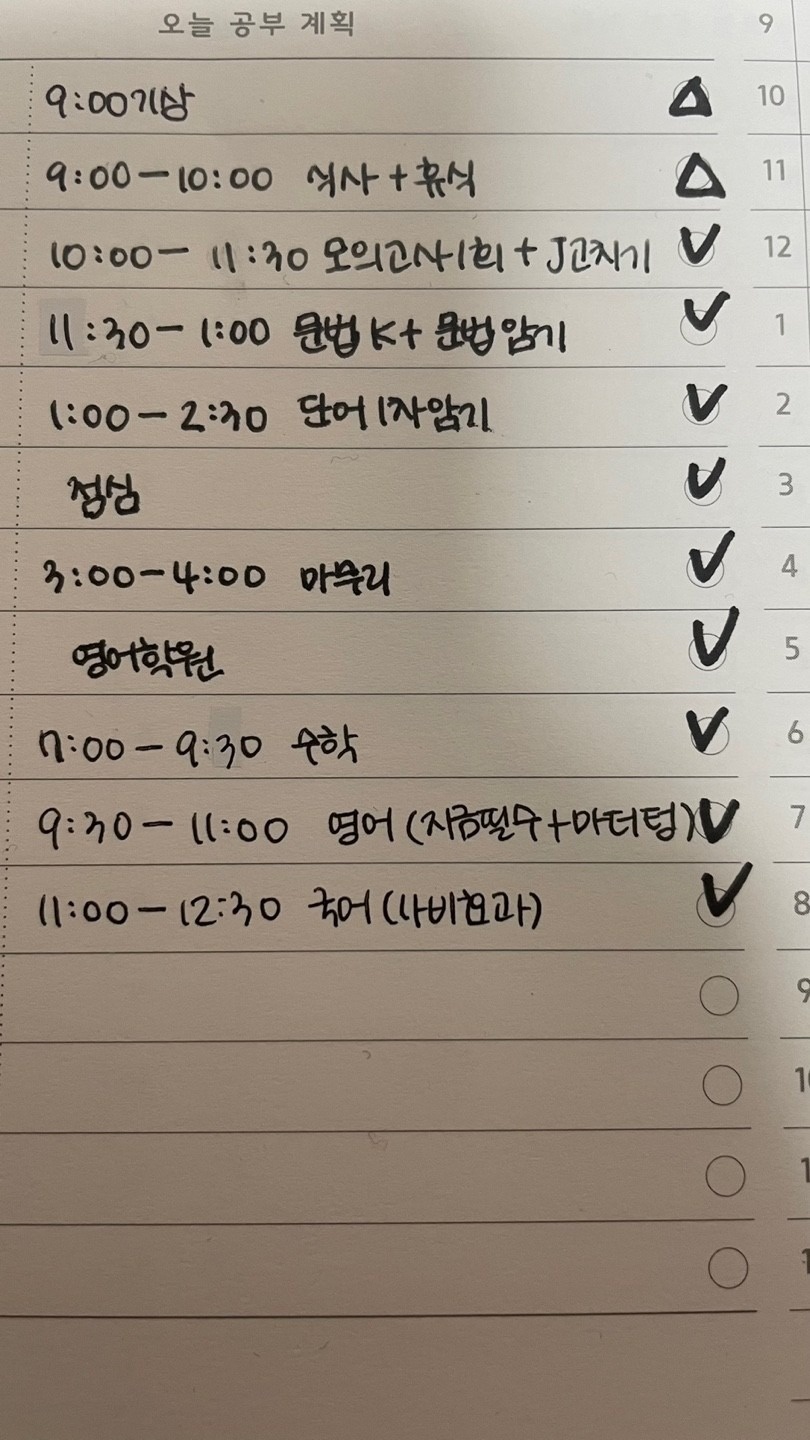 오늘 공부 계획
9
9:00 기상
10
9:00-10:00 식사+휴식
11
10:00- 11:30 모의고사 1회 + J고치기
12
11:30- 1:00 문법 K+ 문법암기
1
1:00-2:30 단어 1차암기
2
점심
3
3:00-4:00 마무리
4
영어학원
5
7:00-9:30 수학
6
9:30-11:00 영어 (지금필수+마더텅)
7
11:00-12:30 국어 (나비효과)
8
9